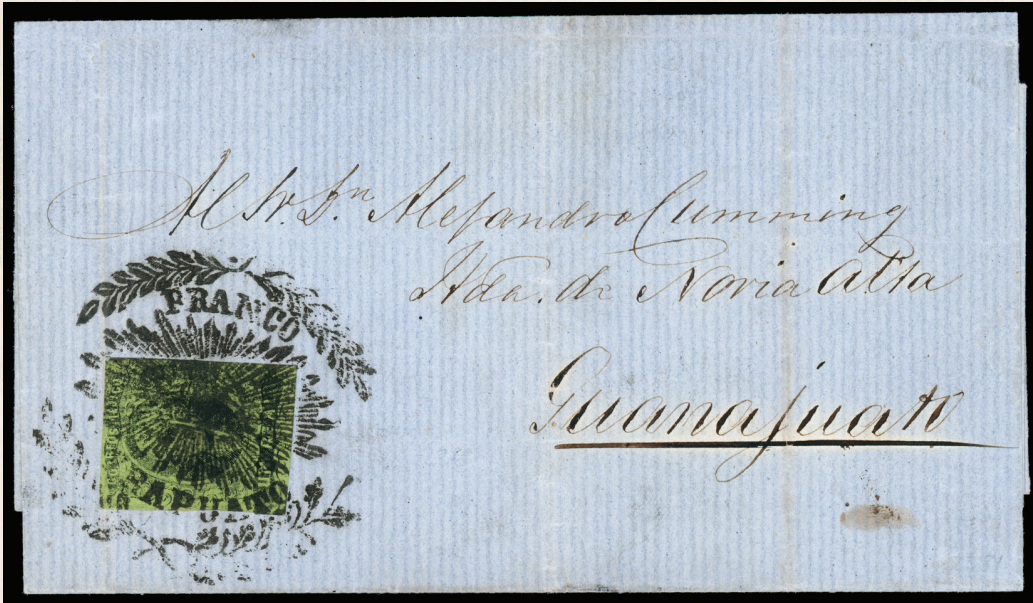 Al Sr. Dn. Alejandro Cumming
Hda. de Noria Alta
Guanajuato
FRANCO
RAPUATO